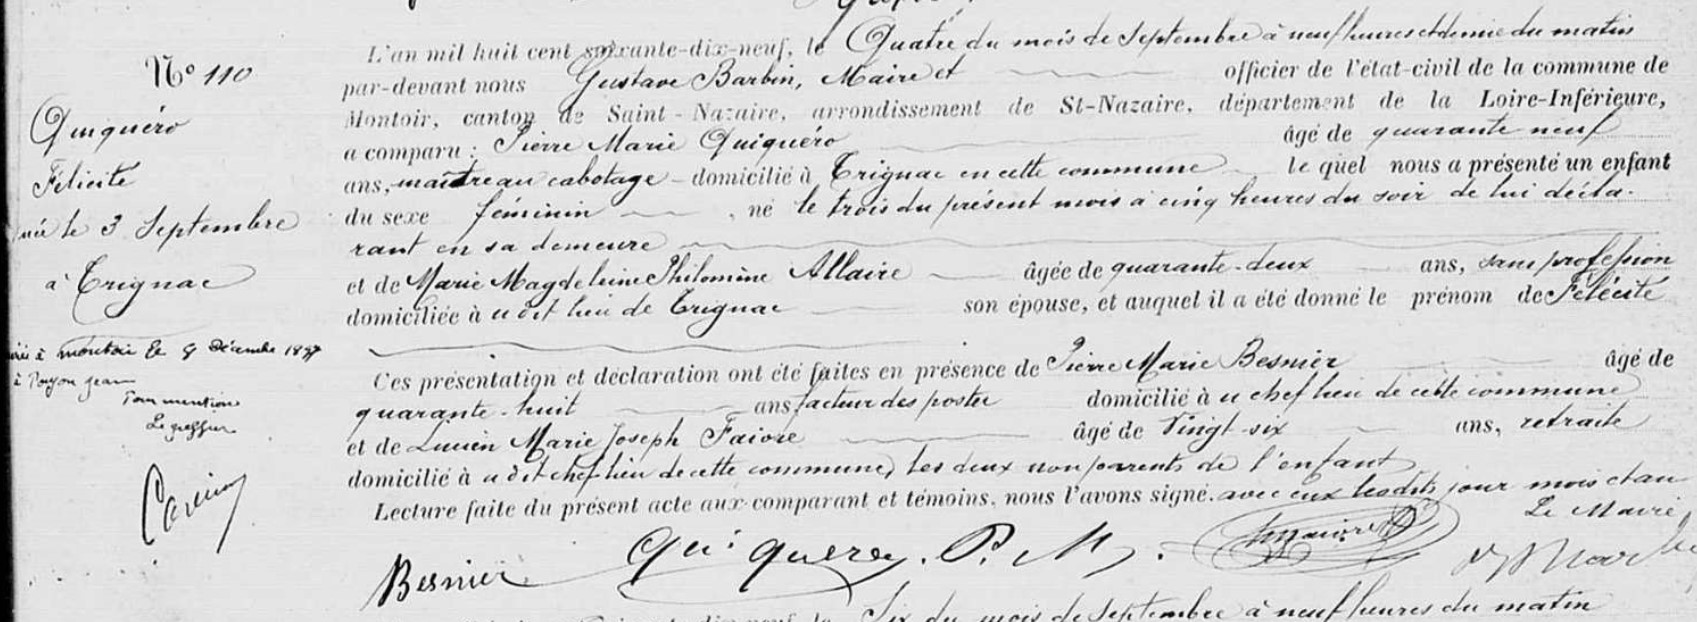 N° 110
Quiquéro
Félicité
née le 3 Septembre
à Trignac
à montoir le 9 Décembre 1897
à Jean
Pour mention
Le greffier
L'an mil huit cent soixante-dix-neuf, le Quatre du mois de Septembre à neuf heures et demie du matin
par-devant nous Gustave Barbin, Maire et officier de l'état-civil de la commune de
Montoir, canton de Saint-Nazaire, arrondissement de St-Nazaire, département de la Loire-Inférieure,
a comparu : Pierre Marie Quiquéro âgé de quarante neuf
ans, maître au cabotage - domicilié à Trignac en cette commune le quel nous a présenté un enfant
du sexe féminin, né le trois du présent mois à cinq heures du soir de lui décla-
rant en sa demeure
et de Marie Magdeleine Philomène Allaire âgée de quarante-deux ans, sans profession
domiciliée à u dit lieu de Trignac son épouse, et auquel il a été donné le prénom de Félicité
Ces présentation et déclaration ont été faites en présence de Pierre Marie Besnier âgé de
quarante-huit ans, facteur des postes domicilié à u chef lieu de cette commune
et de Lucien Marie Joseph Faivre âgé de vingt-six ans, retraité
domicilié à u dit chef lieu de cette commune, les deux non parents de l'enfant
Lecture faite du présent acte aux comparant et témoins, nous l'avons signé. avec eux lesdits jour mois et an
Le Maire,
Besnier Qui quero. P. M.
Six du mois de Septembre à neuf heures du matin